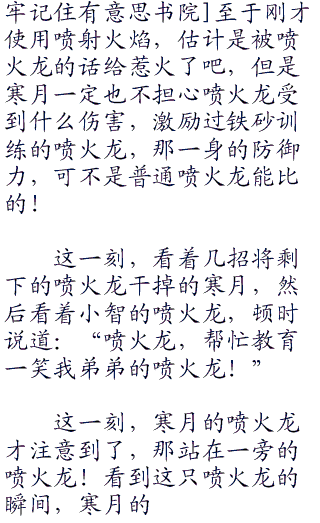 牢记住有意思书院]至于刚才
使用喷射火焰，估计是被喷
火龙的话给惹火了吧，但是
寒月一定也不担心喷火龙受
到什么伤害，激励过铁砂训
练的喷火龙，那一身的防御
力，可不是普通喷火龙能比
的！
这一刻，看着几招将剩
下的喷火龙干掉的寒月，然
后看着小智的喷火龙，顿时
说道：“喷火龙，帮忙教育
一笑我弟弟的喷火龙！”
这一刻，寒月的喷火龙
才注意到了，那站在一旁的
喷火龙！看到这只喷火龙的
瞬间，寒月的